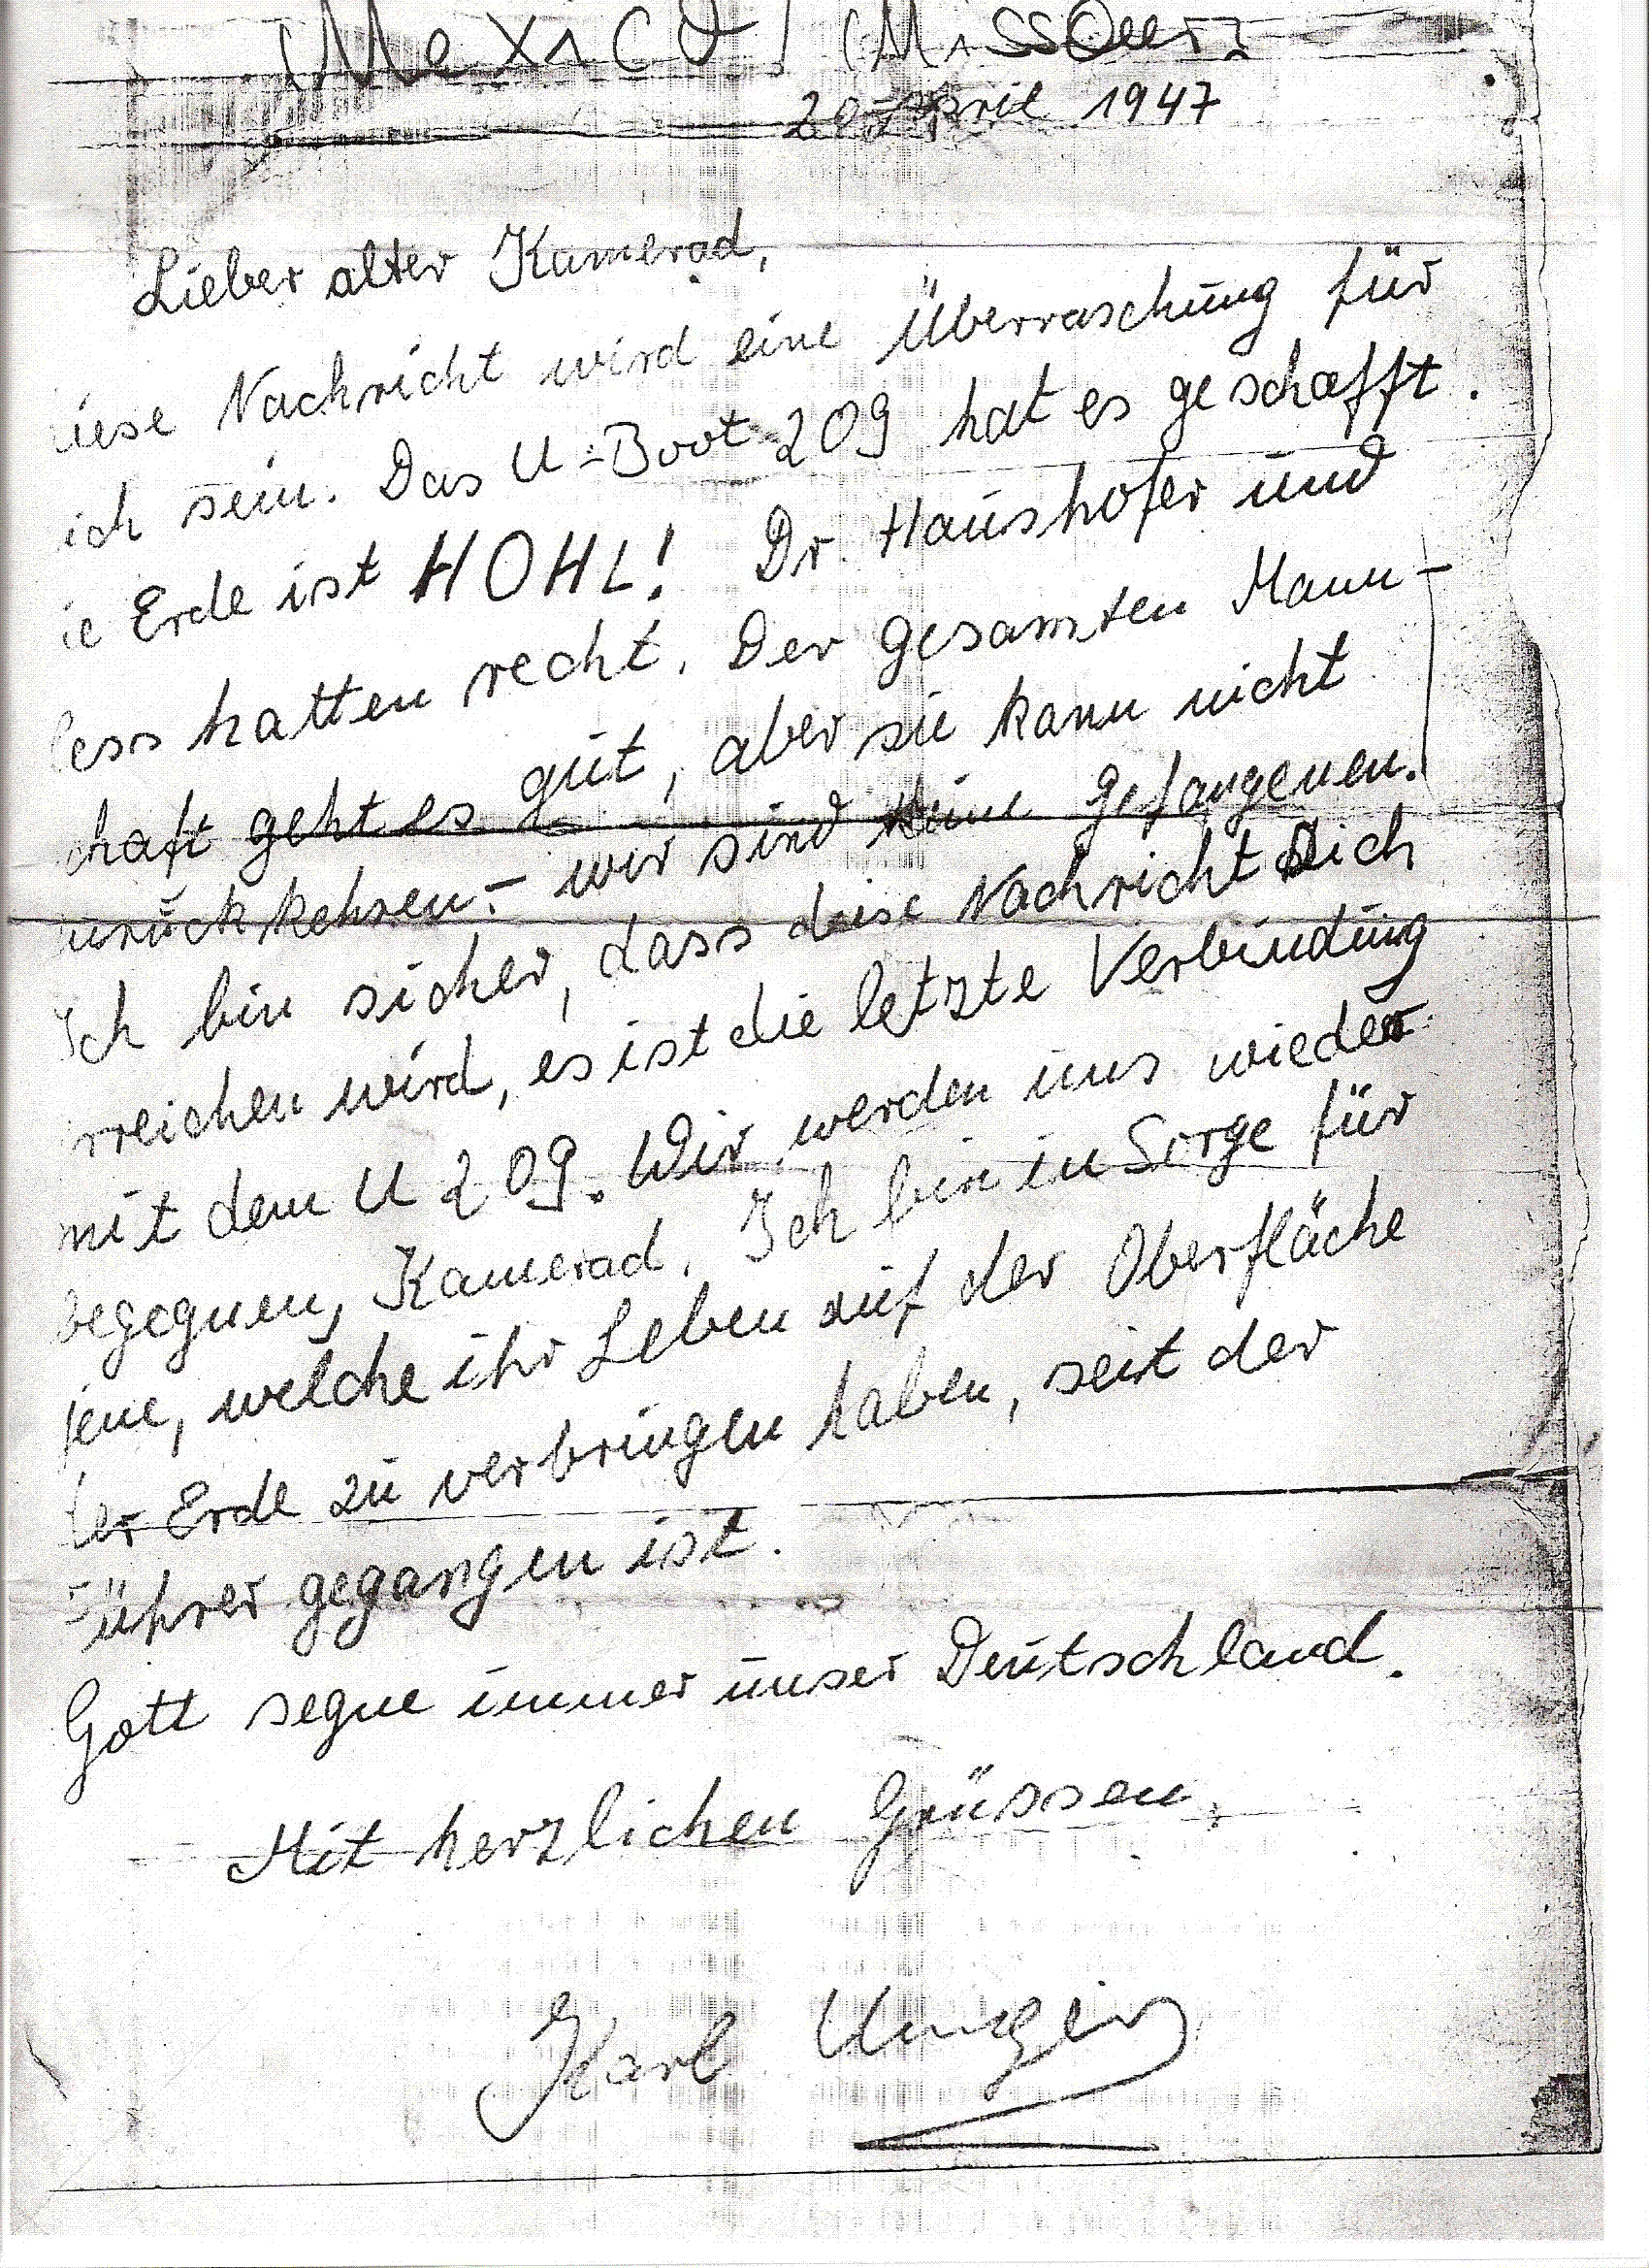 Mexico / Missouri
20 April 1947
Lieber alter Kamerad,
iese Nachricht wird eine Überraschung für
ich sein. Das U-Boot 209 hat es geschafft.
ie Erde ist HOHL! Dr. Haushofer und
ess hatten recht. Der gesamten Mann-
chaft geht es gut, aber sie kann nicht
urückkehren.- wir sind keine gefangenen.
Ich bin sicher, dass diese Nachricht Dich
rreichen wird, es ist die letzte Verbindung
mit dem U 209. Wir werden uns wieder
begegnen, Kamerad. Ich bin in Sorge für
jene, welche ihr Leben auf der Oberfläche
der Erde zu verbringen haben, seit der
Führer gegangen ist.
Gott segne immer unser Deutschland.
Mit herzlichen Grüssen,
Karl Unger